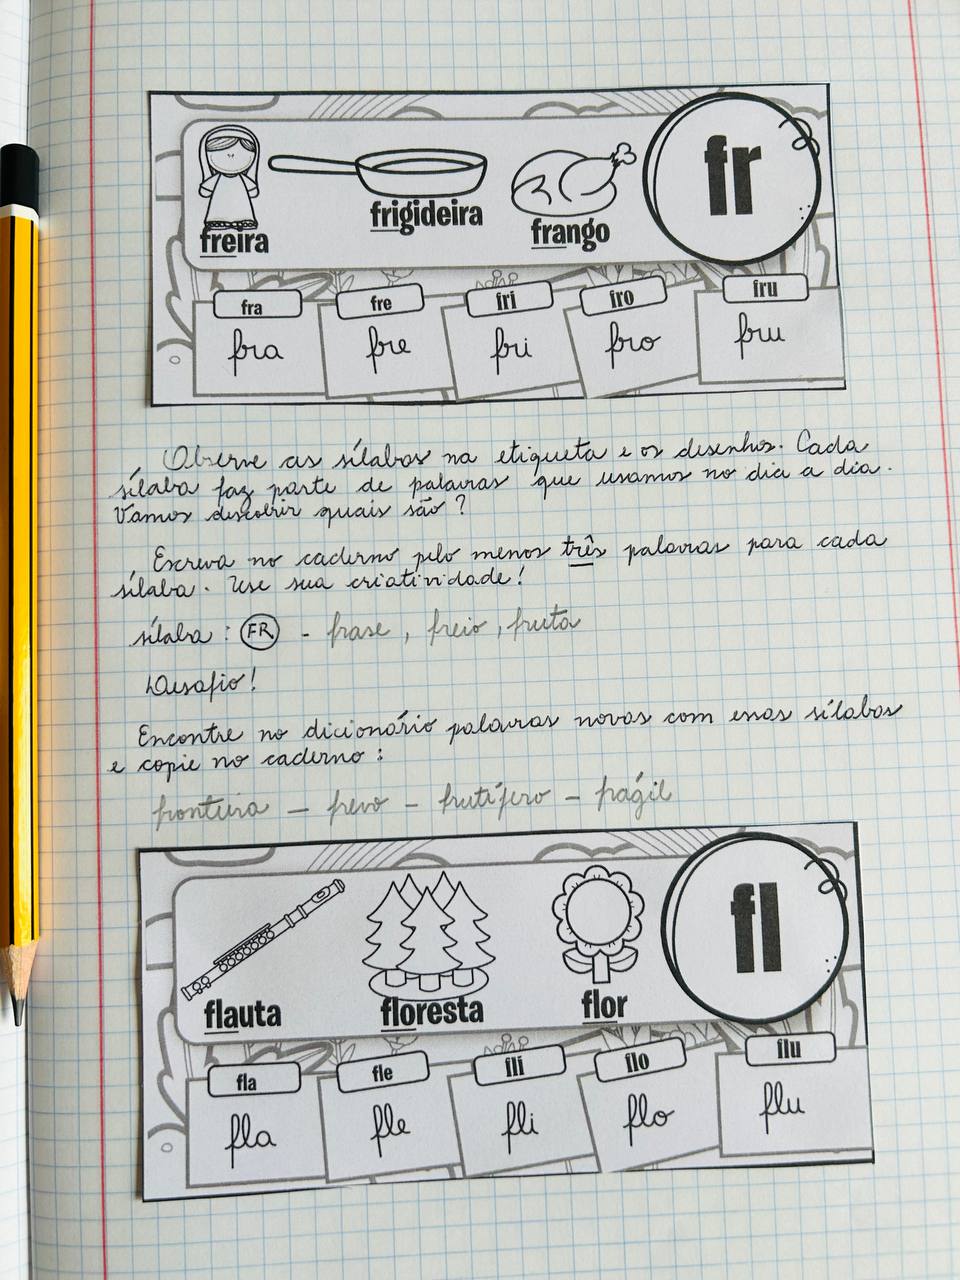 fr
freira
frigideira
frango
fra fre fri fro fru
fra fre fri fro fru
Observe as sílabas na etiqueta e os desenhos. Cada
sílaba faz parte de palavras que usamos no dia a dia.
Vamos descobrir quais são?
Escreva no caderno pelo menos três palavras para cada
sílaba. Use sua criatividade!
sílaba: FR - frase, freio, fruta
Desafio!
Encontre no dicionário palavras novas com essas sílabas
e copie no caderno:
fronteira — frevo - frutífero - frágil
fl
flauta
floresta
flor
fla fle fli flo flu
fla fle fli flo flu